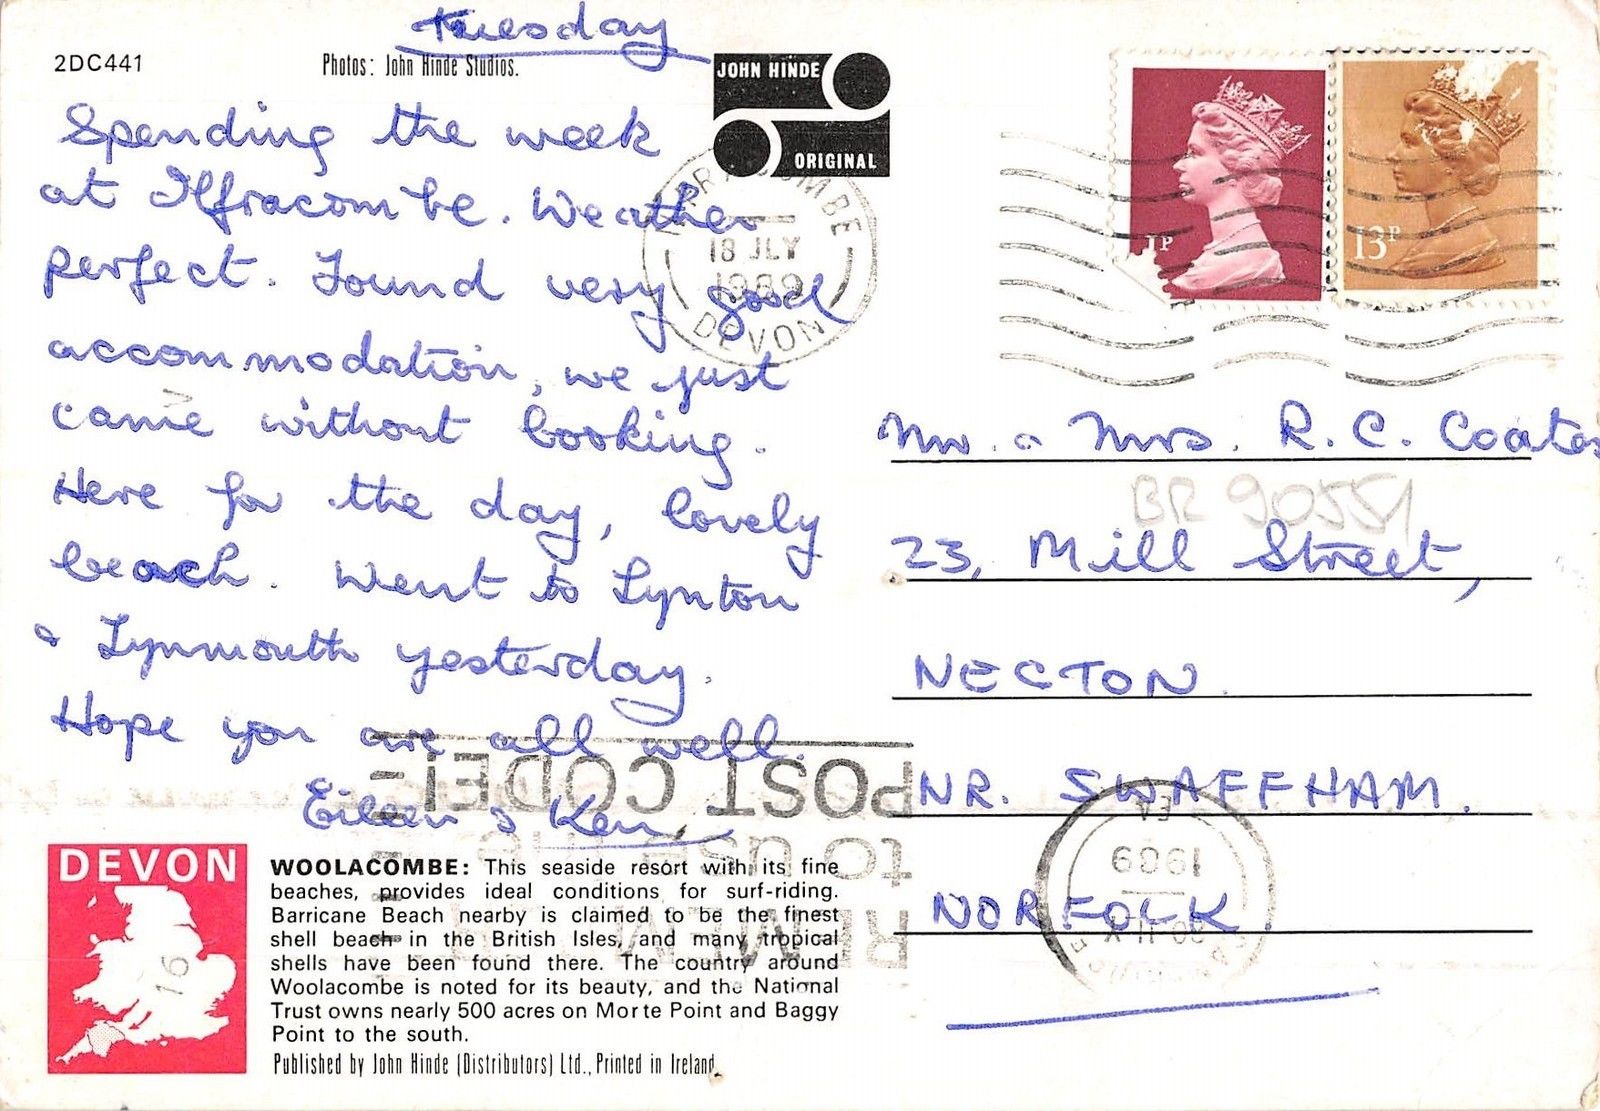 Tuesday
2DC441
Photos: John Hinde Studios.
JOHN HINDE
ORIGINAL
Spending the week
at Ilfracombe. Weather
perfect. Found very good
accommodation, we just
came without booking.
Here for the day, lovely
beach. Went to Lynton
& Lynmouth yesterday.
Hope you are all well.
Eileen & Ken
18 JLY
1989
DEVON
1P
13P
Mr. & Mrs. R. C. Coates
BR 90551
23, Mill Street,
NECTON
NR. SWAFFHAM.
NORFOLK.
POST CODE
to use the
REMEMBER
1989
DEVON
16
WOOLACOMBE: This seaside resort with its fine
beaches, provides ideal conditions for surf-riding.
Barricane Beach nearby is claimed to be the finest
shell beach in the British Isles, and many tropical
shells have been found there. The country around
Woolacombe is noted for its beauty, and the National
Trust owns nearly 500 acres on Morte Point and Baggy
Point to the south.
Published by John Hinde (Distributors) Ltd., Printed in Ireland.